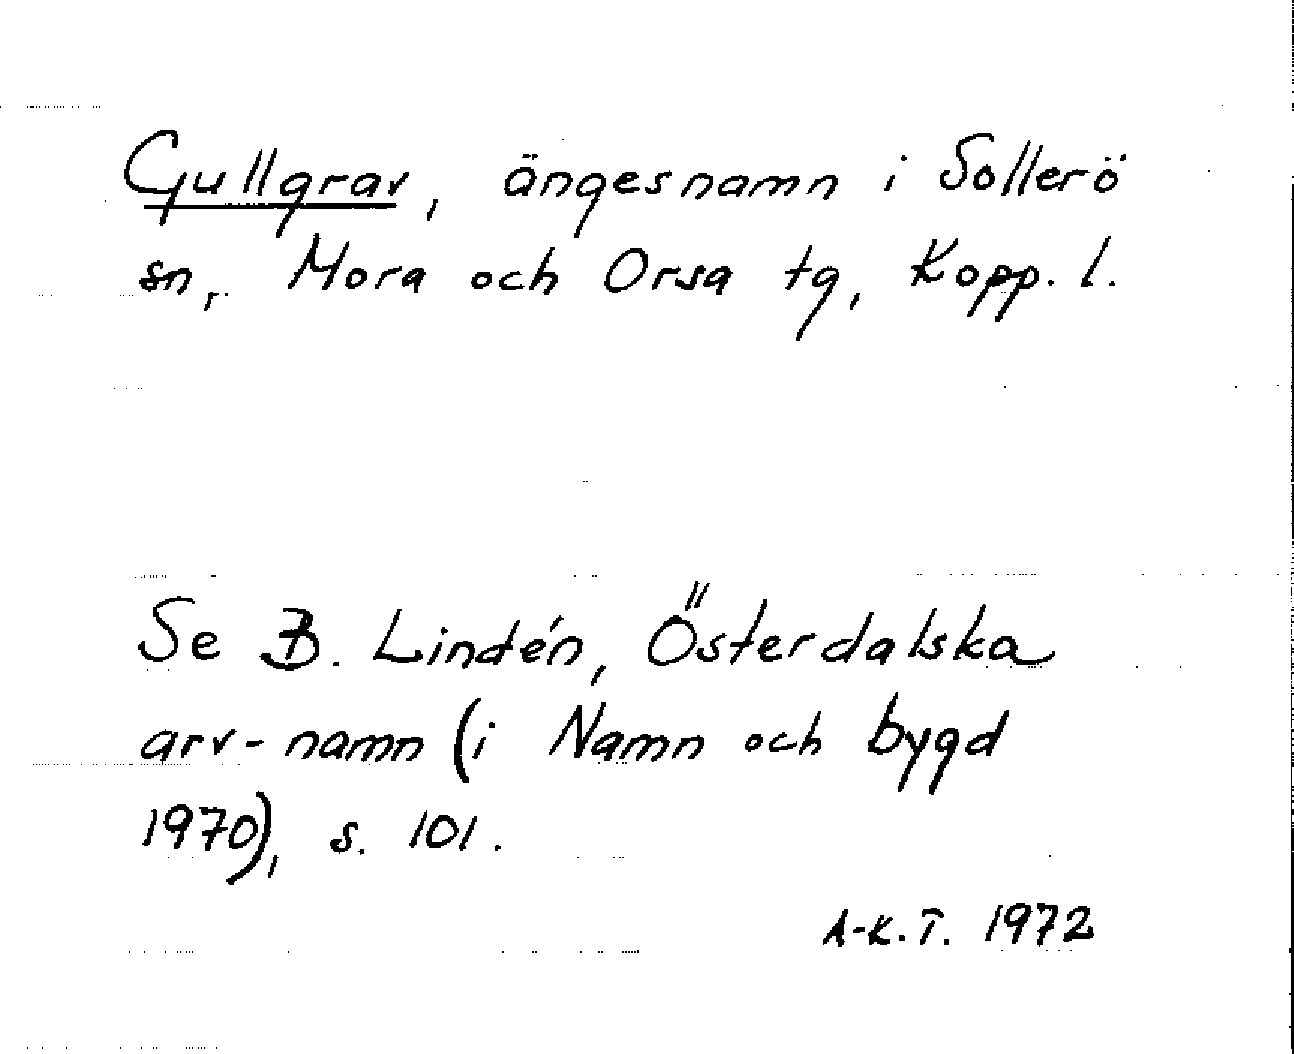 Gullgrav, ängesnamn i Sollerö
sn, Mora och Orsa tg, Kopp. l.
Se B. Lindén, Österdalska
arv-namn (i Namn och bygd
1970), s. 101.
A-K.T. 1972